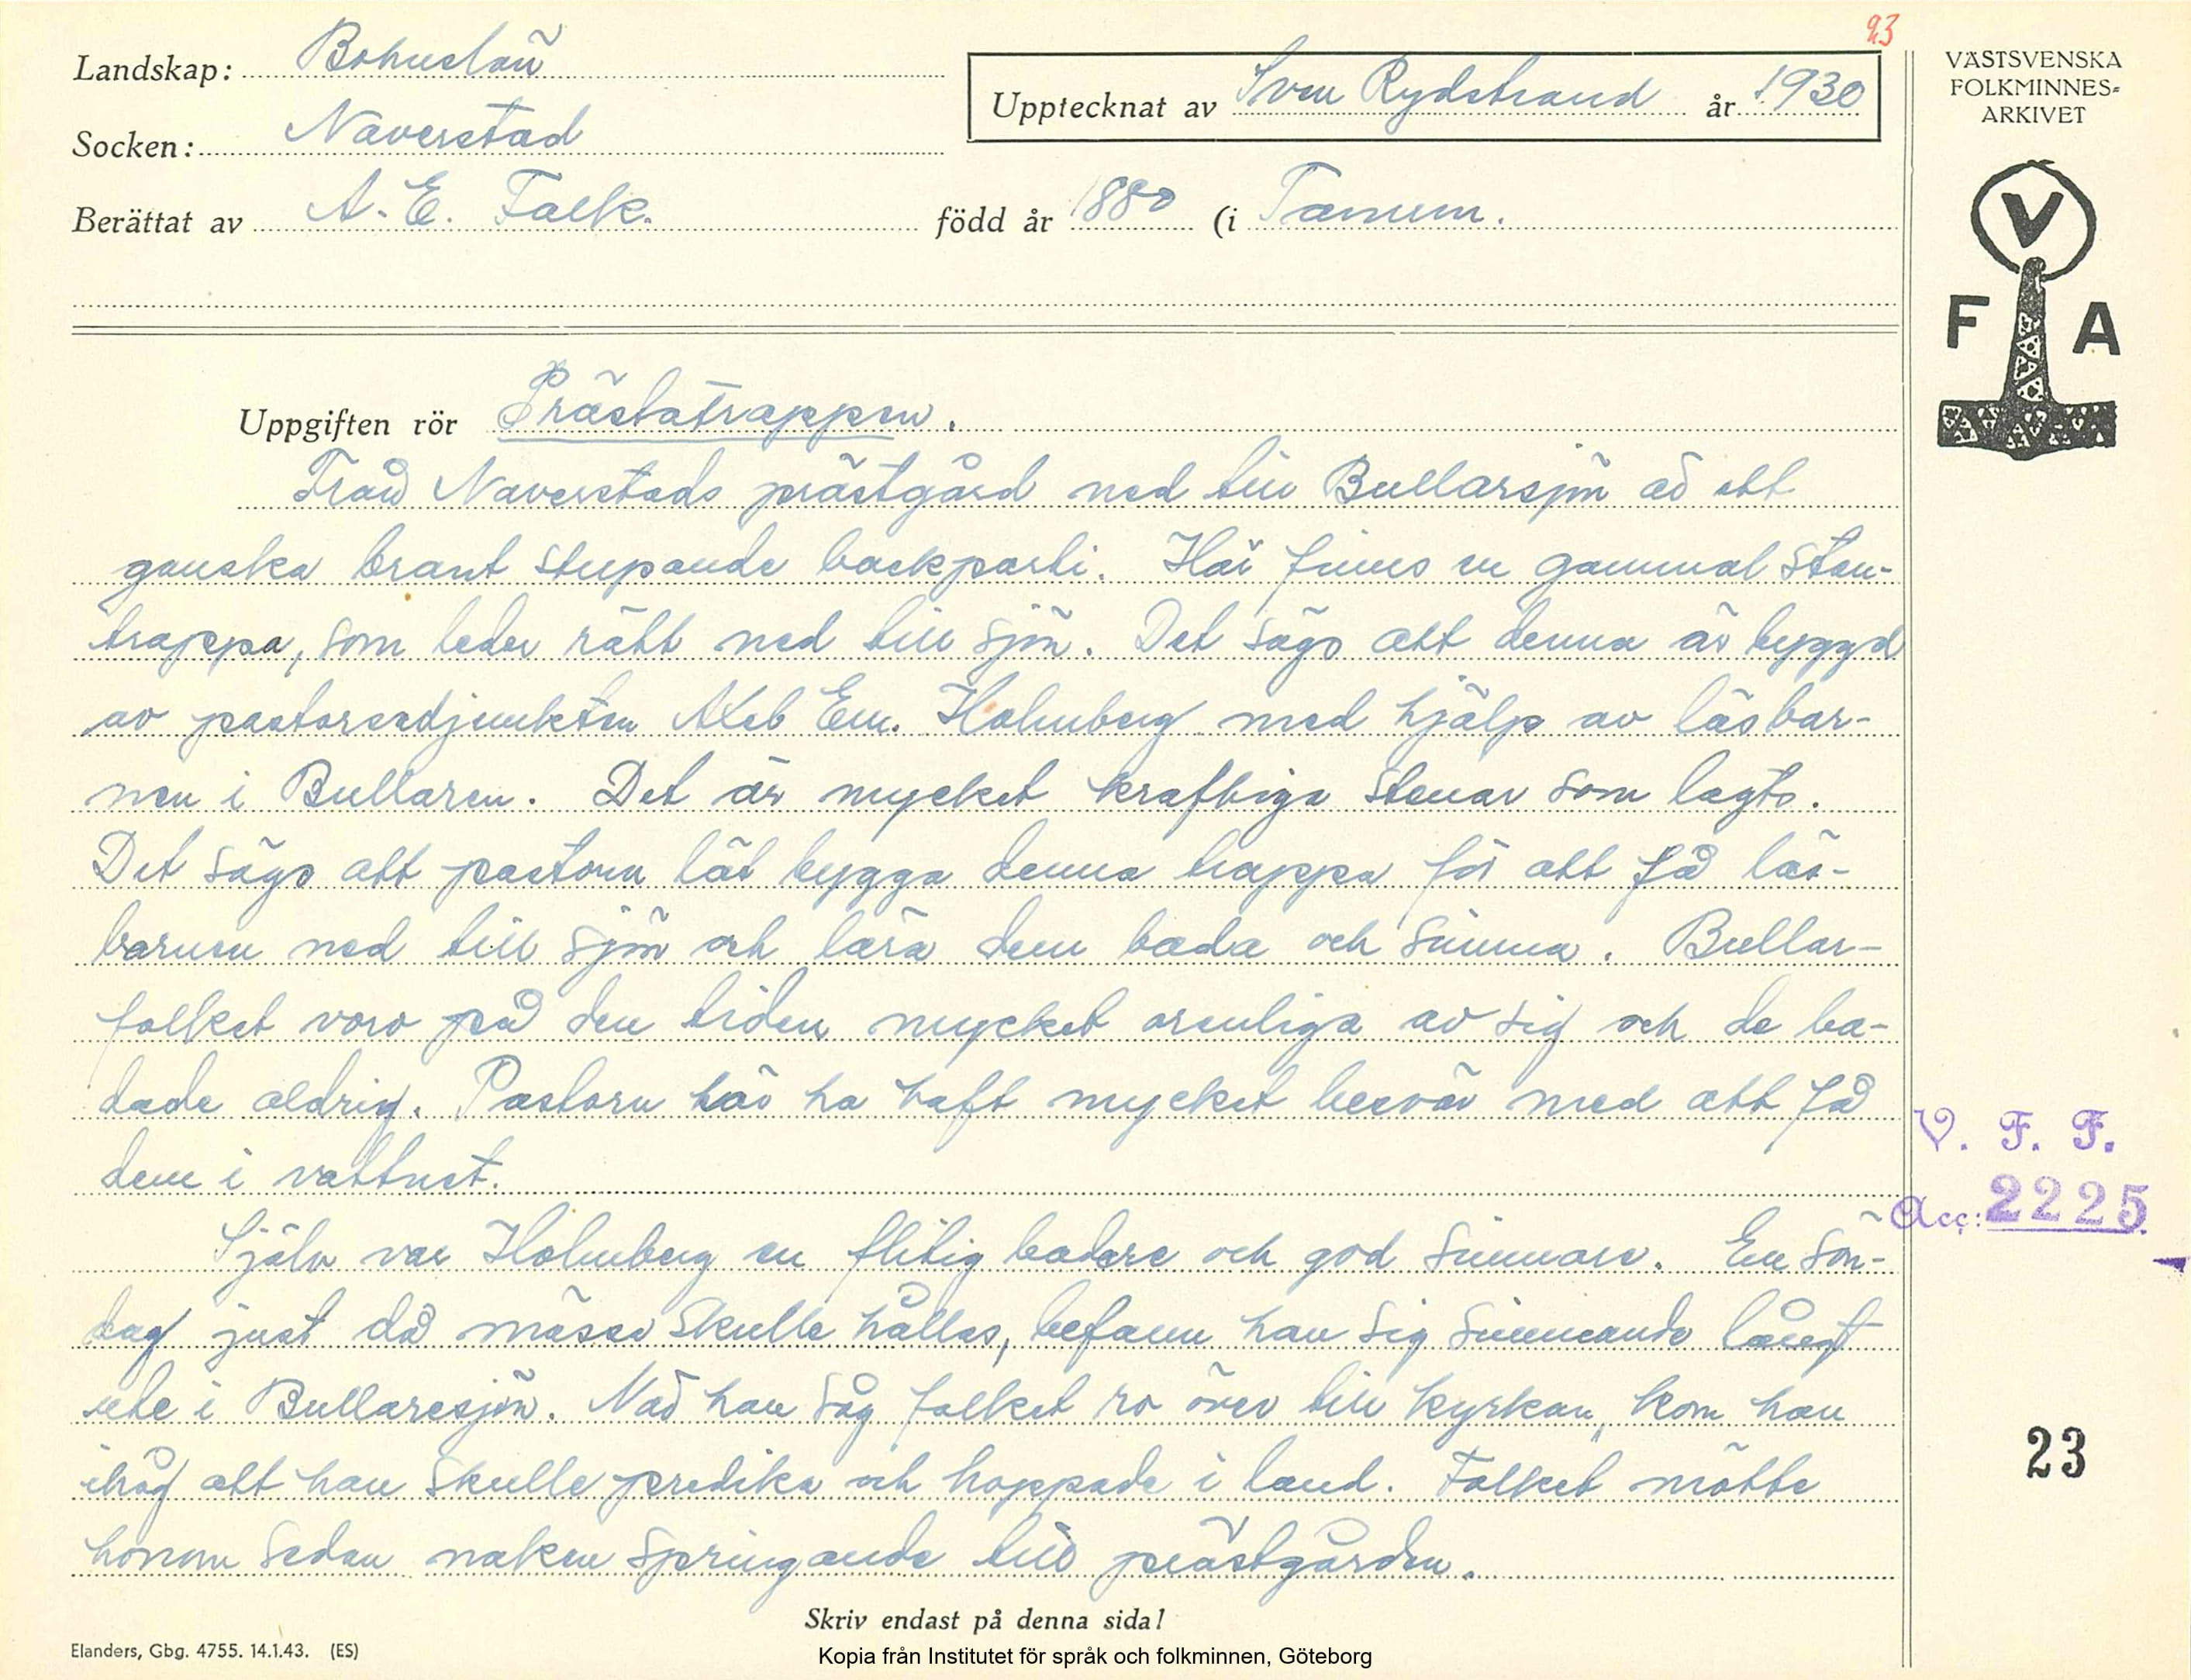 23
Landskap: Bohuslän
Socken: Naverstad
Berättat av A. E. Falk. född år 1880 (i Tanum.
Upptecknat av Sven Rydstrand år 1930
VÄSTSVENSKA
FOLKMINNES-
ARKIVET
V
F A
Uppgiften rör Prästatrappen.
Från Naverstads prästgård ned till Bullarsjön är ett
ganska brant stupande backparti. Här finns en gammal sten-
trappa, som leder rätt ned till sjön. Det säges att denna är byggd
av pastorsadjunkten Axel Em. Holmberg med hjälp av läsbar-
nen i Bullaren. Det är mycket kraftiga stenar som lagts.
Det säges att pastorn lät bygga denna trappa för att få läs-
barnen ned till sjön och lära dem bada och simma. Bullar-
folket voro på den tiden mycket orenliga av sig och de ba-
dade aldrig. Pastorn lär ha haft mycket besvär med att få
dem i vattnet.
Själv var Holmberg en flitig badare och god simmare. En sön-
dag just då mässa skulle hållas, befann han sig simmande långt
ute i Bullaresjön. När han såg folket ro över till kyrkan, kom han
ihåg att han skulle predika och hoppade i land. Folket mötte
honom sedan naken springande till prästgården.
V. F. F.
Acc: 2225
23
Skriv endast på denna sida!
Elanders, Gbg. 4755. 14.1.43. (ES)
Kopia från Institutet för språk och folkminnen, Göteborg